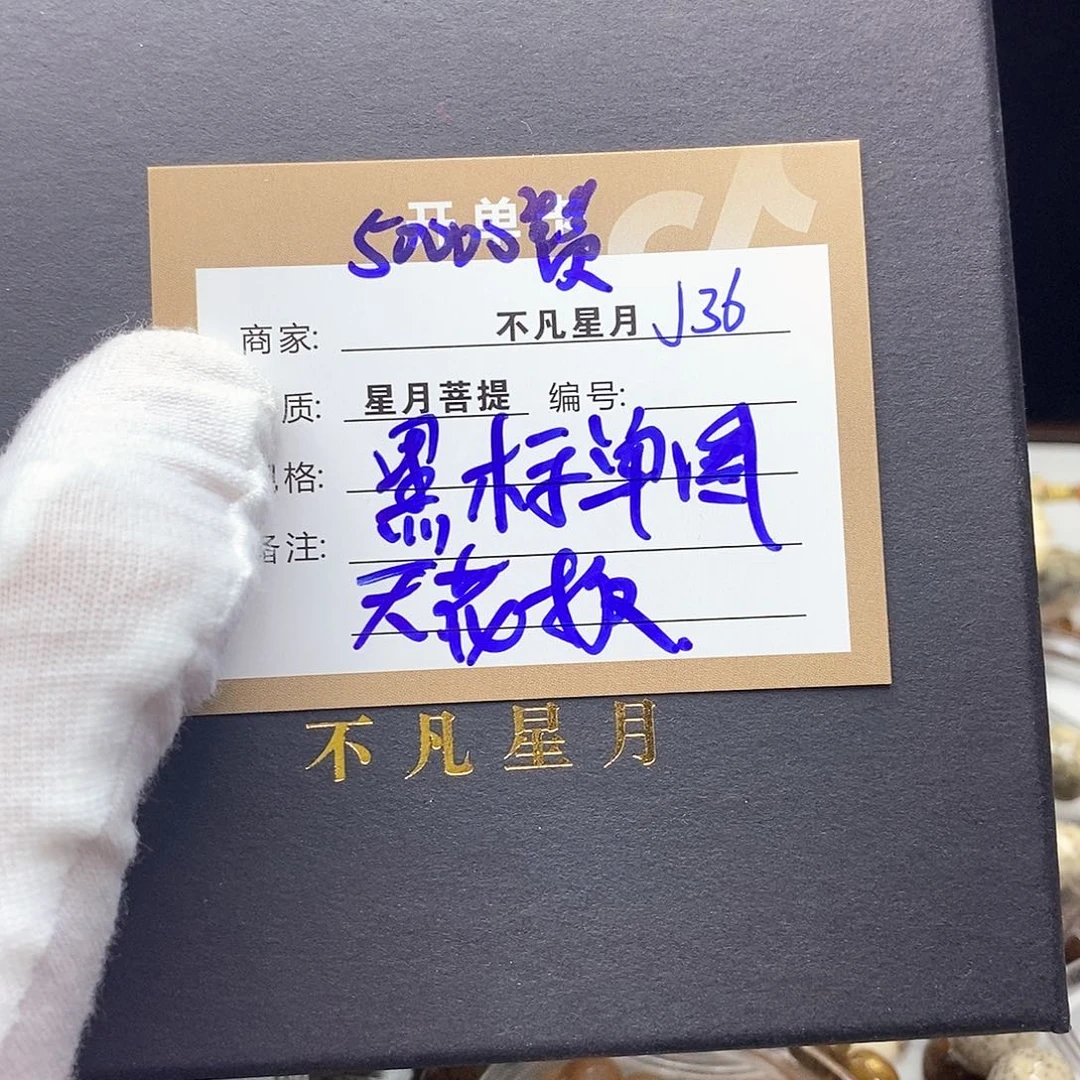 开单卡
5000S赞
商家: 不凡星月 J36
质: 星月菩提 编号:
规格: 黑标单图
备注:
天花板.
不凡星月